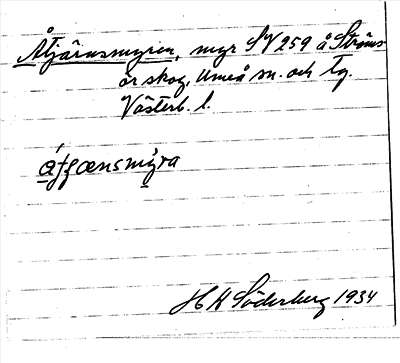 Åtjärnsmyren, myr SV 259 å Ström-
ör skog, Umeå sn. och tg.
Västerb. l.
H K Söderberg 1934